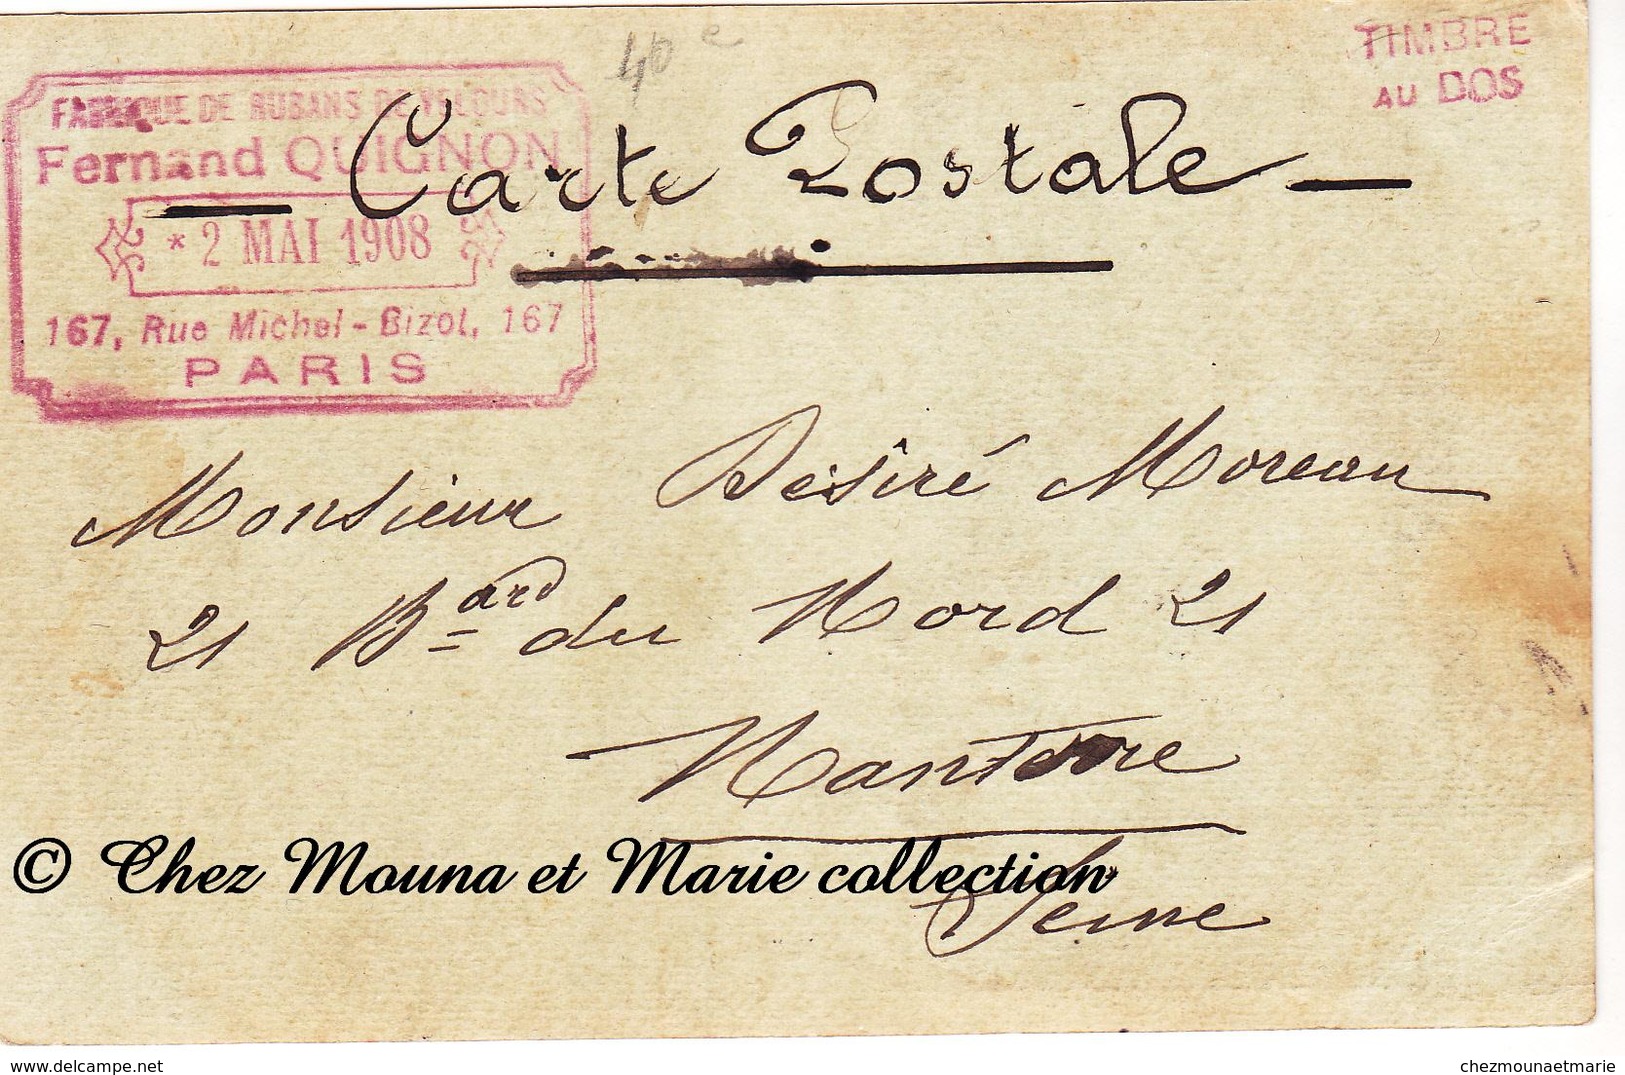 40 e
TIMBRE
AU DOS
FABRIQUE DE RUBANS DE VELOURS
Fernand QUIGNON
* 2 MAI 1908
167, Rue Michel-Bizot, 167
PARIS
— Carte Postale —
Monsieur Désiré Moreau
21 Bard du Nord 21
Nanterre
Seine
© Chez Mouna et Marie collection
delcampe.net
chezmounaetmarie